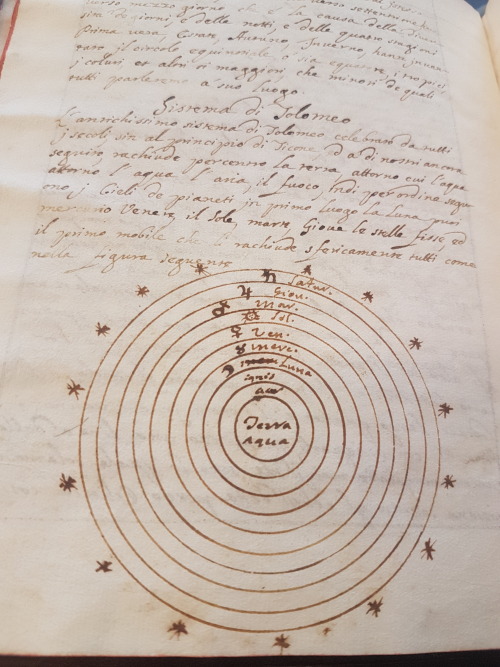 sità de giorni, e delle notti, e delle quatro stagioni
Prima vera, Estate, Autuno, Inverno, hanno
il circolo equinotiale, o sia equatore, i tropici,
j coluri, et altri si maggiori, che minori de quali
tutti parleremo a suo luogo.
Sistema di Tolomeo
L'antichissimo sistema di Tolomeo celebrato da tutti
j secoli, sin al principio di Ticone, ed a di nostri ancora
seguito rachiude per centro la terra attorno cui l'aqua
attorno l'aqua l'aria, il fuoco, indi per ordine
ono j Cieli de pianeti in primo luogo la Luna poi
mercurio Venere, il Sole marte, Giove le stelle fisse, ed
il primo mobile che li rachiude sfericamente tutti come
nella figura seguente
♄ Satur.
♃ Giov.
♂ Mar.
Sol.
♀ Ven.
☿ merc.
☽ Luna
ignis
aer
Terra
Aqua